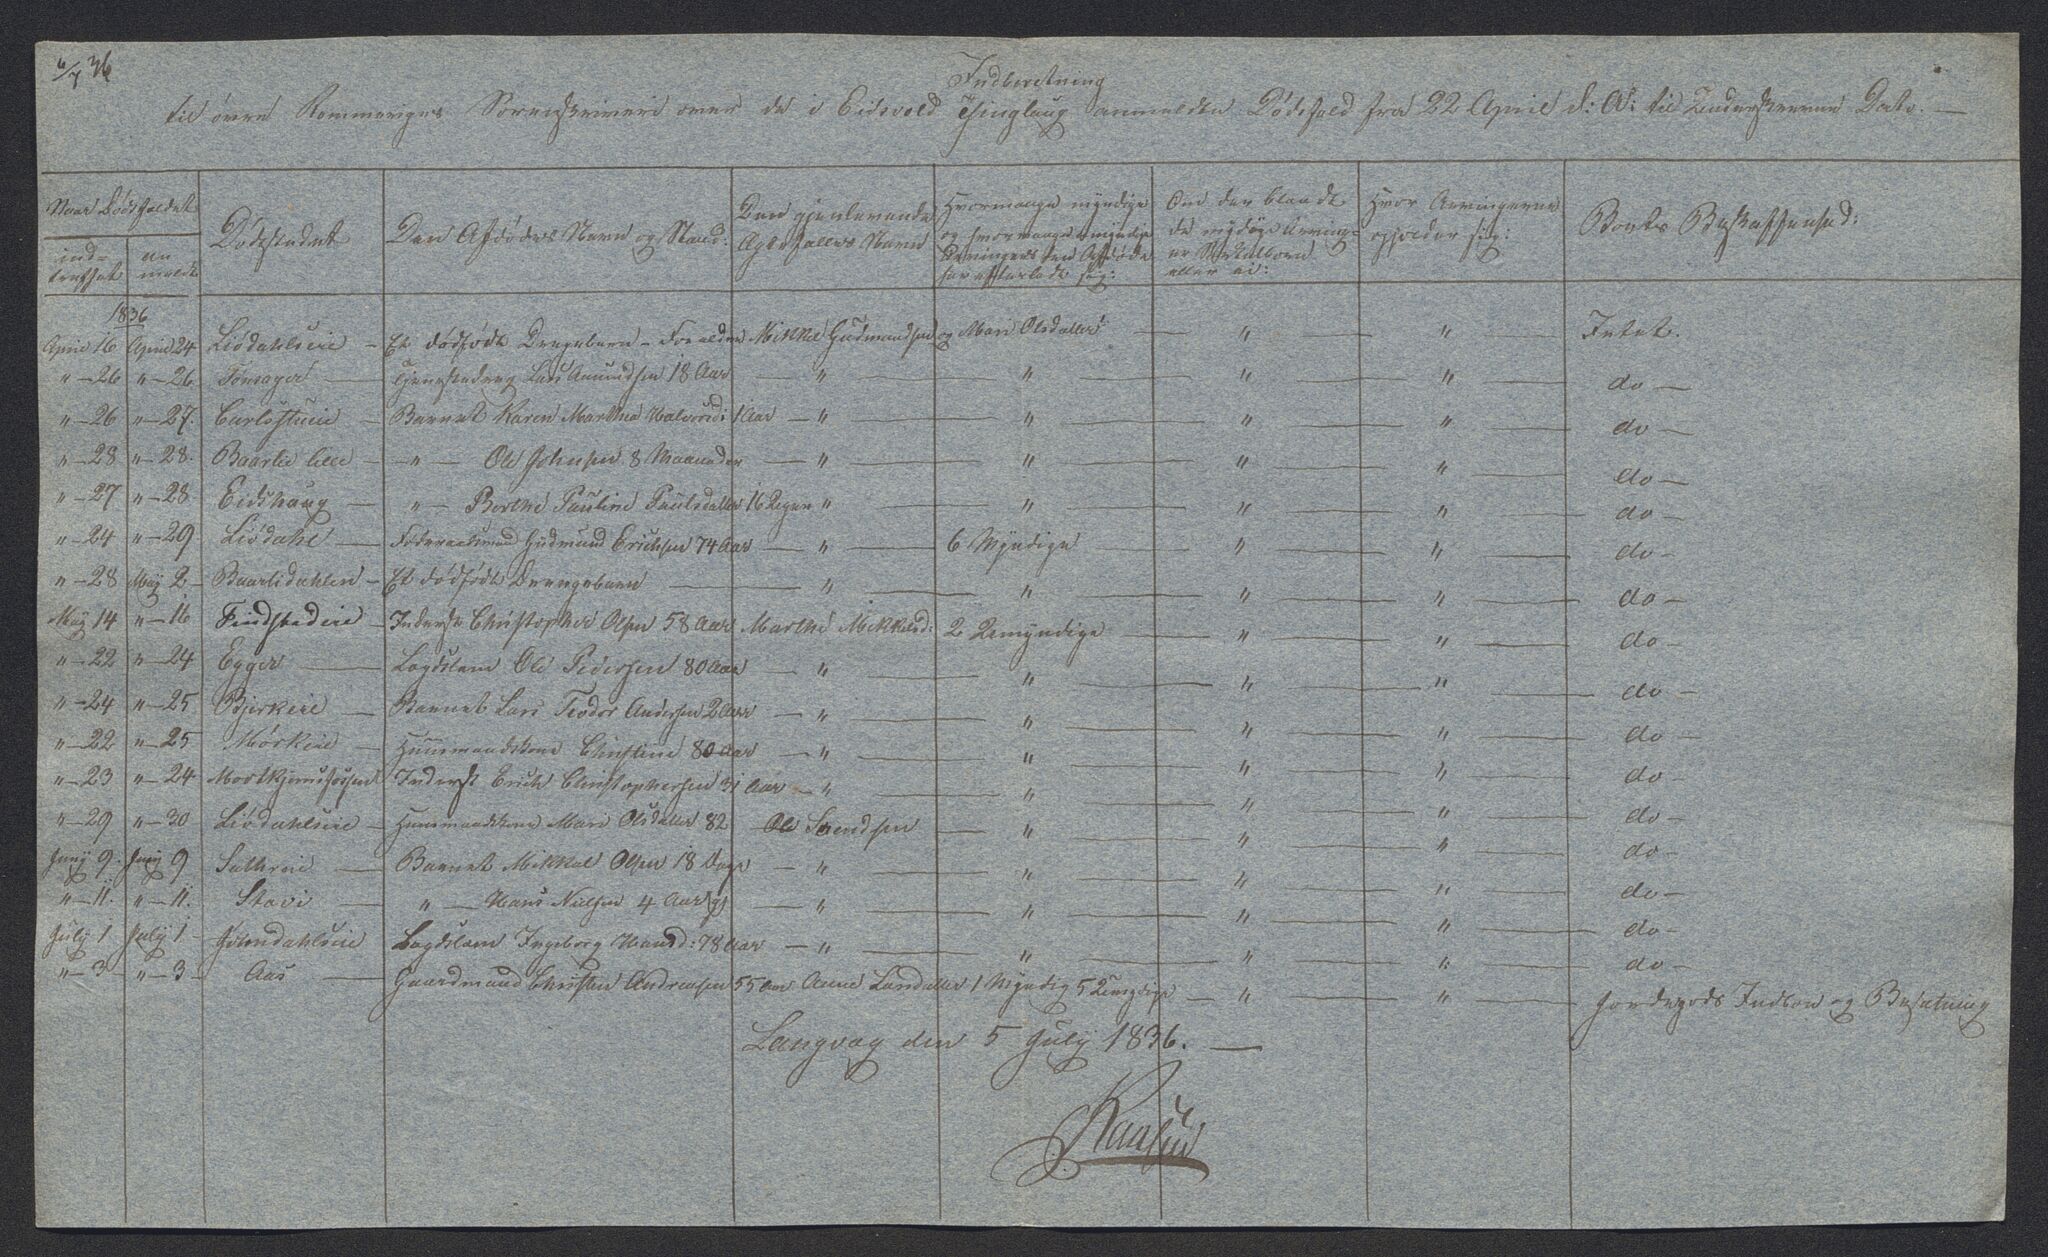 6/7 36
Indberetning
til øvre Rommeriges Sorenskriveri over de i Eidsvold Thinglaug anmeldte Dødsfald fra 22 April d: A: til Underskrevne Dato. —
Naar Dødsfaldet
ind-
treffet
an
meldt
Dødsstedet
Den Afdødes Navn og Stand:
Den gjenlevende
Ægtefælles Navn
Hvormange myndige
og hvormange umyndige
Arvinger den Afdøde
har efterladt sig:
Om der blandt
de myndige Arvin-
er Skulborn
eller ei:
Hvor Arvingerne
opholder sig:
Boets Beskaffenhed:
1836
April 16 April 24 Liødahlseie — Et dødfødt Drengebarn — Forældre Mikkel Gudmundsen og Mari Olsdatter — " — " — Intet.
" — 26 " — 26. Tønsager — Lars Amundsen 18 Aar — " — " — " — " — do —
" — 26 " — 27. Carlsstueie — Barnet Karen Marthea Halvorsd: 1 Aar — " — " — " — " — do —
" — 28 " — 28. Baarlie lille — " — Ole Johnsen 8 Maaneder — " — " — " — " — do —
" — 27 " — 28 Eidshaug — " — Berthe Pauline Paulsdatter 16 Uger " — " — " — " — do —
" — 24 " — 29. Liødahl — Føderaadsmand Gudmund Erichsen 74 Aar — " — 6 Myndige — " — " — do —
" — 28 May 2 — Baarlidahlen — Et dødfødt Drengebarn — " — " — " — " — do —
May 14 " — 16 Findstadeie — Inderst Christopher Olsen 58 Aar Marthe Mikkelsd: 2 Umyndige — " — " — do —
" — 22 " — 24 Egger — Lægdslem Ole Pedersen 80 Aar — " — " — " — " — do —
" — 24 " — 25 Bjerkeie — Barnet Lars Teodor Andersen 2 Aar — " — " — " — " — do —
" — 22 " — 25 Mørkeie — Huusmandskone Christine 80 Aar — " — " — " — " — do —
" — 23 " — 24 Inderst Erich Christophersen 31 Aar — " — " — " — " — do —
" — 29 " — 30 Liødahlseie — Huusmandskone Mari Olsdatter 82 Ole Svendsen — " — " — " — do —
Juny 9. Juny 9 Sathreie — Barnet Mikkel Olsen 18 Dage — " — " — " — " — do —
" — 11. " — 11. Stavi — " — Hans Nielsen 4 Aar — " — " — " — " — do —
July 1 July 1 — Lægdslem Ingeborg Hansd: 78 Aar — " — " — " — " — do —
" — 3 — " — 3 — Aas — Gaardmand Christen Andreasen 55 Aar Anne Larsdatter 1 Myndig 5 Umyndige — " — " — Jordegods Indboe og Besætning
Langvag den 5 July 1836. —